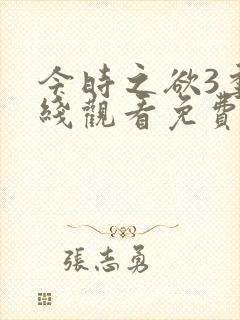 今時之欲3在
綫觀看免費
張志勇